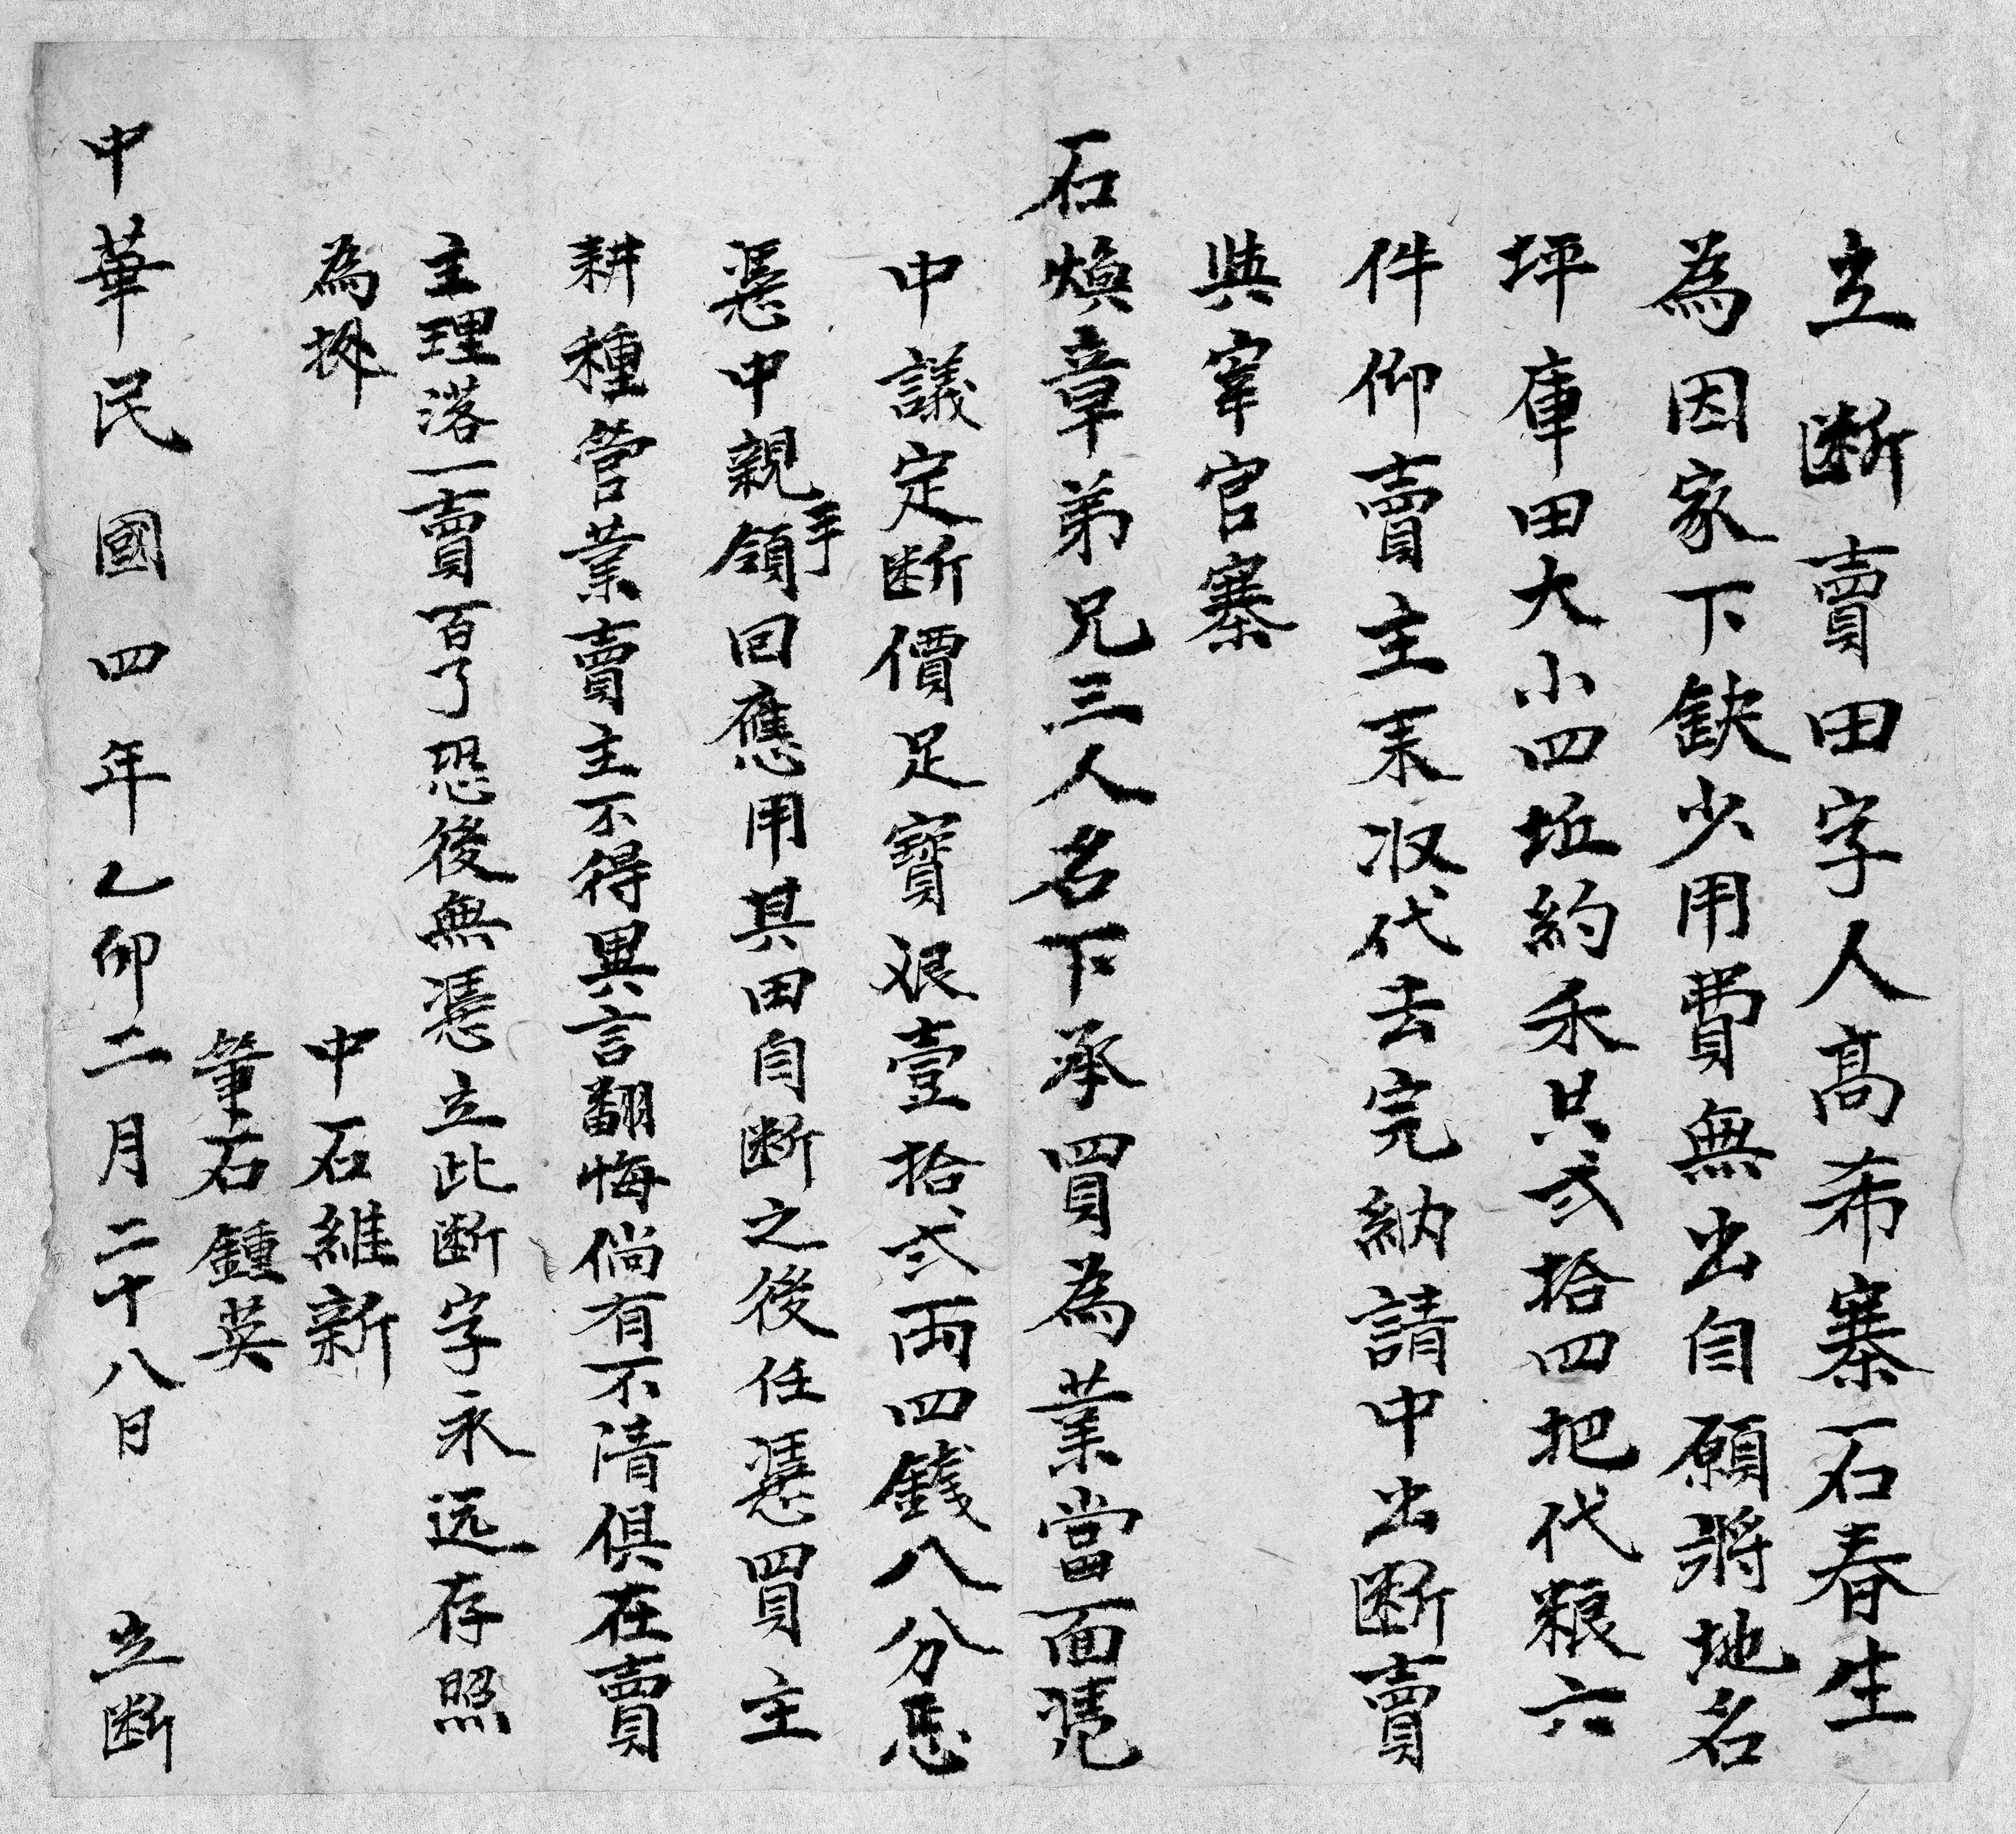 立断賣田字人髙希寨石春生
為因家下缺少用費無出自願將地名
坪庫田大小四坵約禾只弍拾四把代粮六
件仰賣主耒收代去完納請中出断賣
與宰官寨
石煥章弟兄三人名下承買為業當面凴
中議定断價足寳艰壹拾弍両四錢八分
憑中親手領回應用其田自断之後任憑買主
耕種管業賣主不得異言翻悔倘有不清俱在賣
主理落一賣百了恐後無憑立此断字永远存照
為拠
中石維新
筆石鍾英
中華民國四年乙卯二月二十八日 立断